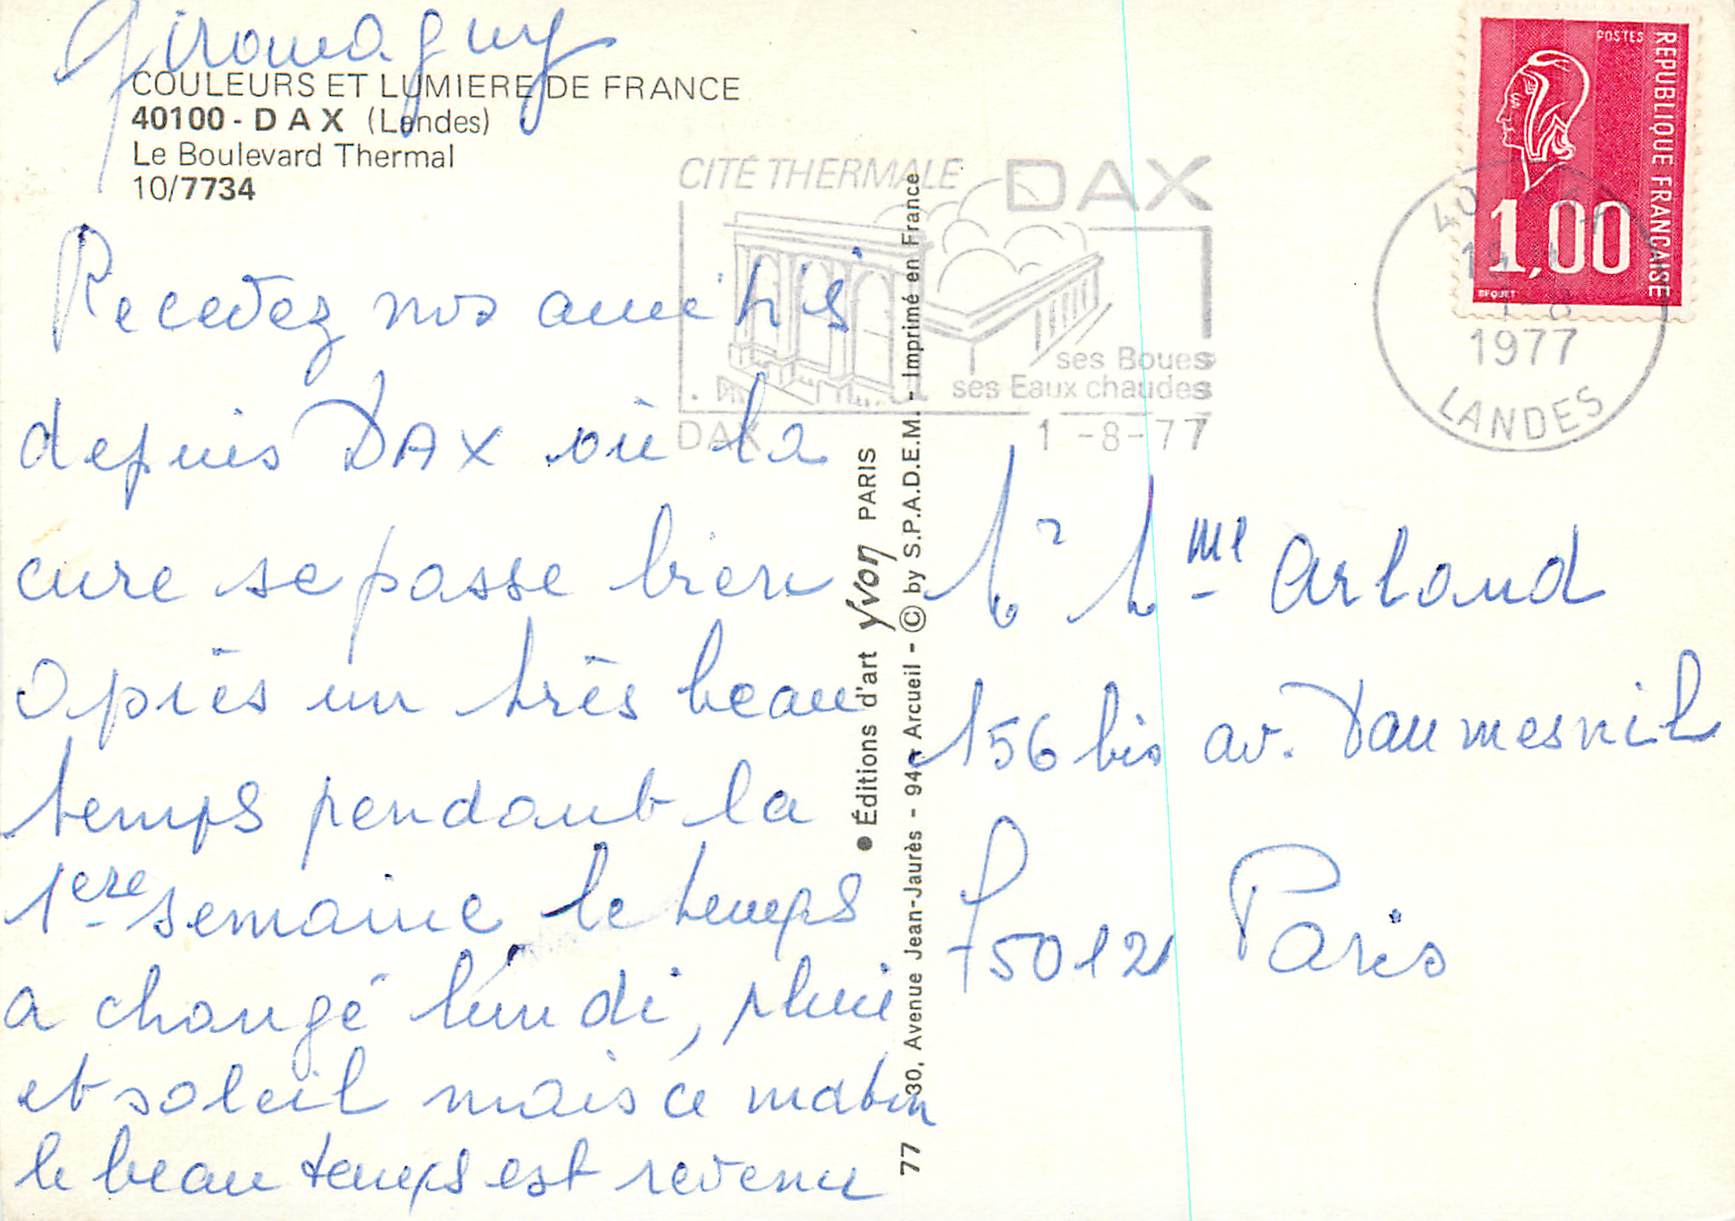 Giromagny
COULEURS ET LUMIERE DE FRANCE
40100 - DAX (Landes)
Le Boulevard Thermal
10/7734
Recevez nos amitiés
depuis DAX où la
cure se passe bien
Après un très beau
temps pendant la
1ère semaine, le temps
a changé lundi, pluie
et soleil mais ce matin
le beau temps est revenu
CITÉ THERMALE DAX
ses Boues
ses Eaux chaudes
DAX 1-8-77
POSTES
REPUBLIQUE FRANCAISE
1,00
BEQUET
1-8
1977
LANDES
• Éditions d'art Yvon PARIS
77 30, Avenue Jean-Jaurès - 94 - Arcueil - © by S.P.A.D.E.M. - Imprimé en France
Mr Mme Arland
156 bis av. Daumesnil
75012 Paris